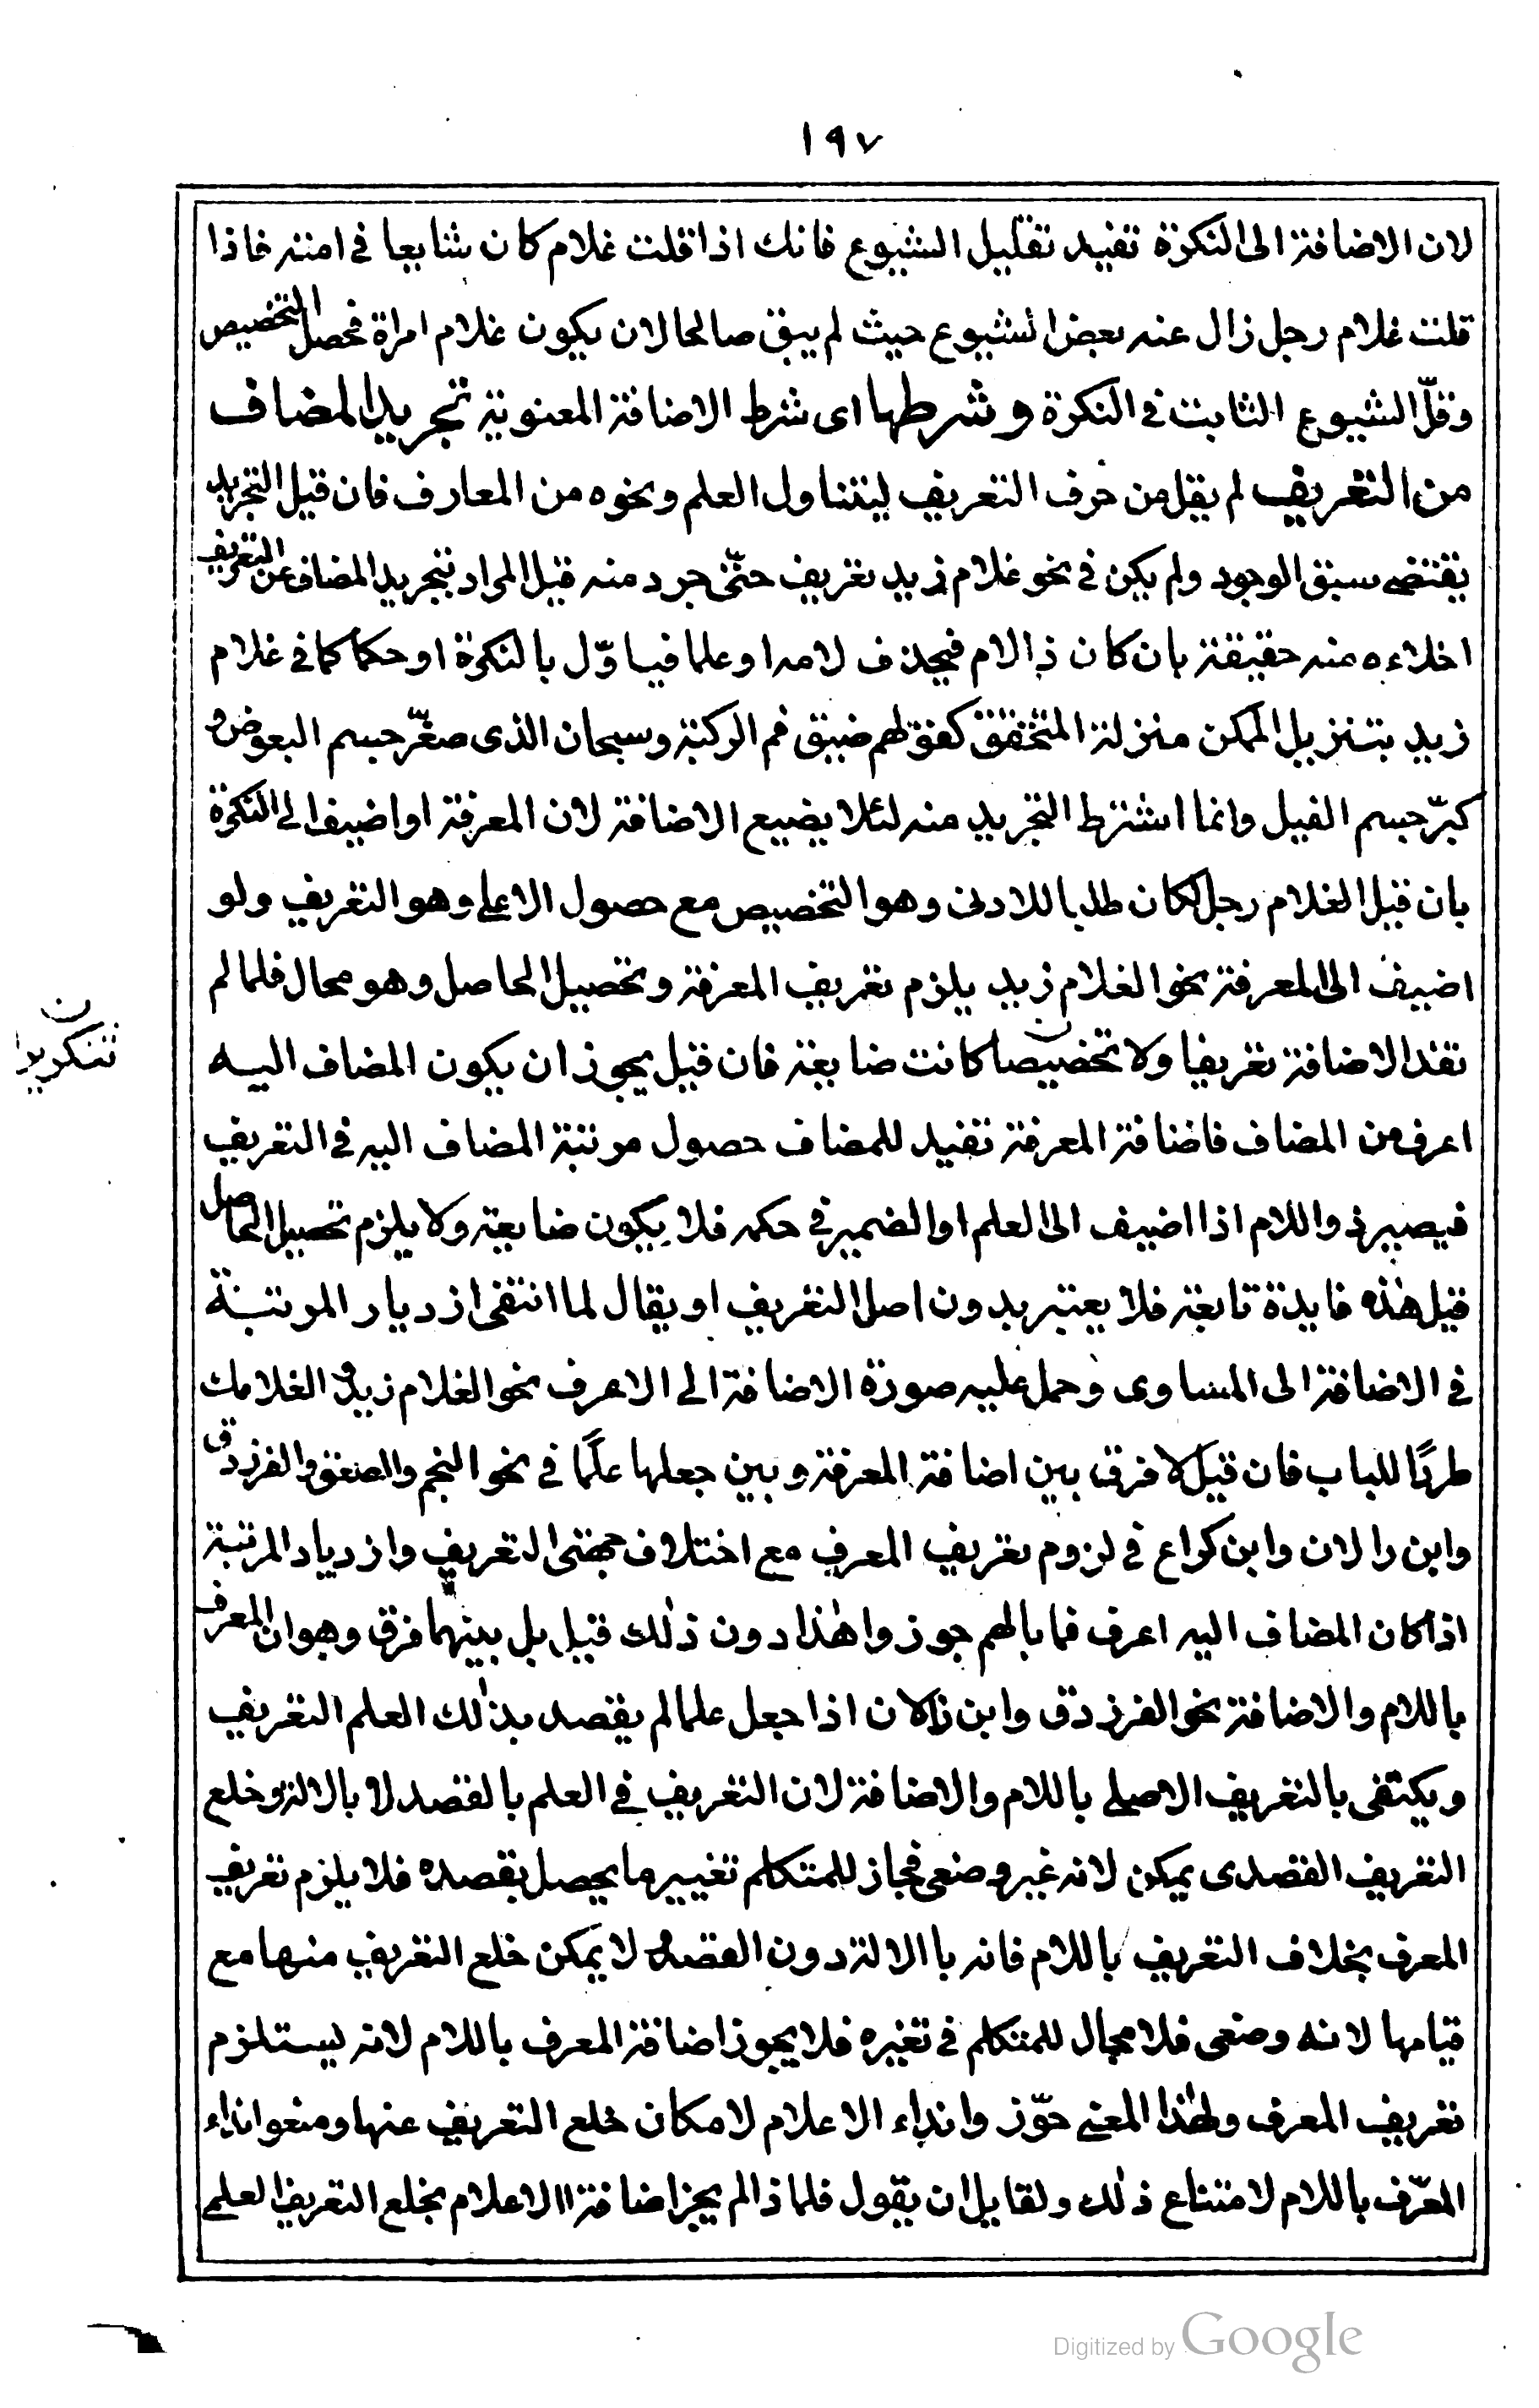 ١٩٧
لان الاضافة الى النكرة تفيد تقليل الشيوع فانك اذا قلت غلام كان شايعا فى امته فاذا
قلت غلام رجل زال عنه بعض الشيوع حيث لم يبق صالحا لان يكون غلام امراة فحصل التخصيص
وقلّ الشيوع الثابت فى النكرة وشرطها اى شرط الاضافة المعنوية تجريد المضاف
من التعريف لم يقل من حرف التعريف ليتناول العلم ونحوه من المعارف فان قيل التجريد
يقتضى سبق الوجود ولم يكن فى نحو غلام زيد تعريف حتّى جرد منه قيل المراد بتجريد المضاف عن التعريف
اخلاءه منه حقيقة بان كان ذا لام فيحذف لامه او علما فياوّل بالنكرة او حكما كما فى غلام
زيد بتنزيل الممكن منزلة المتحقق كقولهم ضيق فم الركبة وسبحان الذى صغّر جسم البعوض و
كبّر جسم الفيل وانما اشترط التجريد منه لئلا يضيع الاضافة لان المعرفة او اضيف الى النكرة
بان قيل الغلام رجل لكان طلبا للادنى وهو التخصيص مع حصول الاعلى وهو التعريف ولو
اضيف الى المعرفة نحو الغلام زيد يلزم تعريف المعرفة وتحصيل الحاصل وهو محال فلما لم
تفد الاضافة تعريفا ولا تخصيصا كانت ضايعة فان قيل يجوز ان يكون المضاف اليه
ن
تنكريدا
اعرف من المضاف فاضافة المعرفة تفيد للمضاف حصول مرتبة المضاف اليه فى التعريف
فيصير ذو اللام اذا اضيف الى العلم او الضمير فى حكمه فلا يكون ضايعة ولا يلزم تحصيل الحاصل
قيل هذه فايدة تابعة فلا يعتبر بدون اصل التعريف او يقال لما انتفى ازديار المرتبة
فى الاضافة الى المساوى وحمل عليه صورة الاضافة الى الاعرف نحو الغلام زيد والغلامك
طردًا للباب فان قيل لا فرق بين اضافة المعرفة وبين جعلها علمًا فى نحو النجم والصعق والفرزدق
وابن رالان وابن كراع فى لزوم تعريف المعرف مع اختلاف جهتى التعريف وازدياد المرتبة
اذا كان المضاف اليه اعرف فما بالهم جوزوا هذا دون ذلك قيل بل بينهما فرق وهو ان المعرف
باللام والاضافة نحو الفرزدق وابن زالان اذا جعل علما لم يقصد بذلك العلم التعريف
ويكتفى بالتعريف الاصلى باللام والاضافة لان التعريف فى العلم بالقصد لا بالالة وخلع
التعريف القصدى يمكن لانه غير وضعى فجاز للمتكلم تغيير ما يحصل بقصده فلا يلزم تعريف
المعرف بخلاف التعريف باللام فانه باالالة دون القصد ولا يمكن خلع التعريف منها مع
قيامها لانه وضعى فلا مجال للمتكلم فى تغيره فلا يجوز اضافة المعرف باللام لانه يستلزم
تعريف المعرف ولهذا المعنى جوّزوا نداء الاعلام لامكان خلع التعريف عنها ومنعوا نداء
المعرّف باللام لامتناع ذلك ولقايل ان يقول فلماذا لم يجز اضافة االاعلام بخلع التعريف العلمى
Digitized by Google